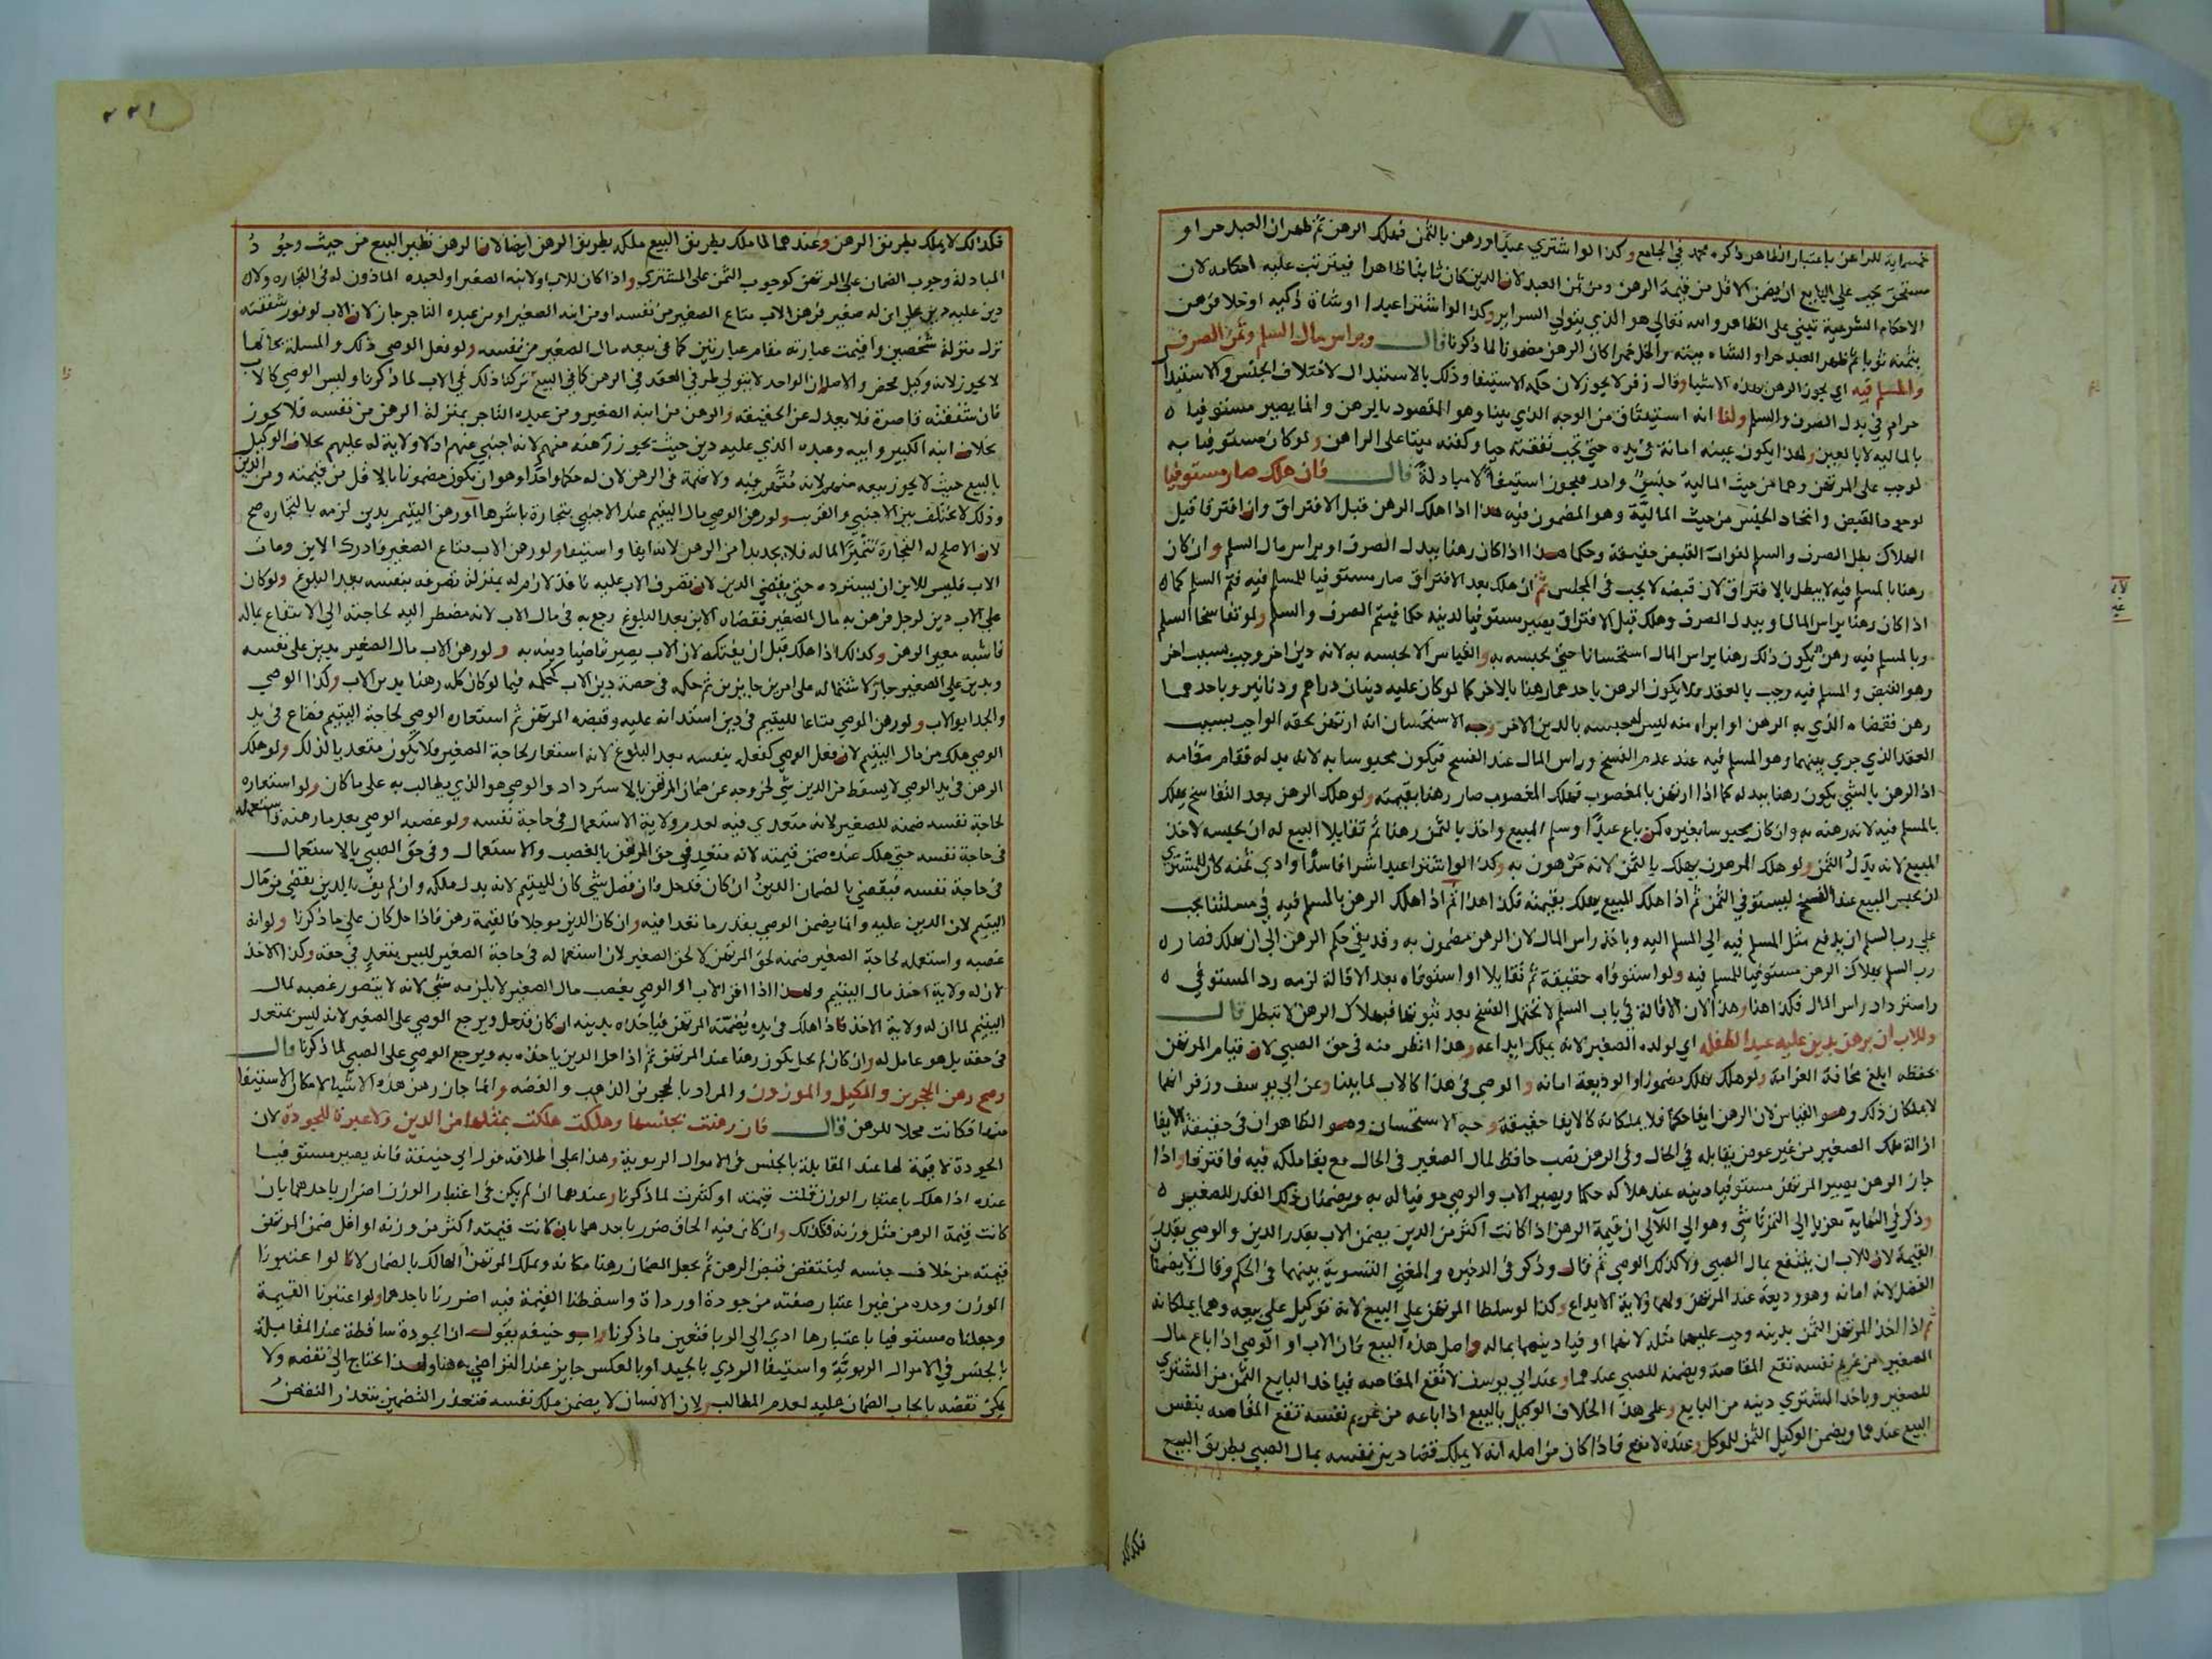 خمسماية للراهن باعتبار الظاهر ذكره محمد في الجامع وكذا لو اشترى عبدا ورهن بالثمن فهلك الرهن ثم ظهر ان العبد حر او
مستحق يجب على البايع ان يضمن الاقل من قيمة الرهن ومن ثمن العبد لان الدين كان ثابتا ظاهرا فيترتب عليه احكامه لان
الاحكام الشرعية تبني على الظاهر والله تعالى هو الذي يتولى السراير وكذا لو اشترا عبدا او شاة ذكيه او خلا فرهن
بثمنه ثوبا ثم ظهر العبد حرا والشاه ميته والخل خمرا كان الرهن مضمونا لما ذكرنا قال وبراس مال السلم وثمن الصرف
والمسلم فيه اي يجوز الرهن بهذه الاشيا وقال زفر لا يجوز لان حكمه الاستيفا وذلك بالاستبدال لاختلاف الجنس والاستبدال
حرام في بدل الصرف والسلم ولنا انه استيثاق من الوجه الذي بينا وهو المقصود بالرهن وانما يصير مستوفيا
بالماليه لا بالعين ولهذا يكون عينه امانة في يده حتى تجب نفقته حيا وكفنه ميتا على الراهن ولو كان مستوفيا به
لوجب على المرتهن وهما من حيث المالية جنس واحد فيجوز استيفا لا مبادلة قال فان هلك صار مستوفيا
لوجود القبض واتحاد الجنس من حيث المالية وهو المضمون فيه هذا اذا هلك الرهن قبل الافتراق وان افترقا قبل
الهلاك بطل الصرف والسلم لفوات القبض حقيقة وحكما هذا اذا كان رهنا ببدل الصرف او براس مال السلم وان كان
رهنا بالمسلم فيه لا يبطل بالافتراق لان قبضه لا يجب في المجلس ثم ان هلك بعد الافتراق صار مستوفيا للمسلم فيه فتم السلم كما
اذا كان رهنا براس المال او ببدل الصرف وهلك قبل الافتراق يصير مستوفيا لدينه حكما فيتم الصرف والسلم ولو تفاسخا السلم
وبالمسلم فيه رهن يكون ذلك رهنا براس المال استحسانا حتى يحبسه به والقياس الا يحبسه به لانه دين اخر وجب بسبب اخر
وهو القبض والمسلم فيه وجب بالعقد فلا يكون الرهن باحدهما رهنا بالاخر كما لو كان عليه دينان دراهم ودنانير وباحدهما
رهن فقضاه الذي به الرهن او ابراه منه ليس له حبسه بالدين الاخر وجه الاستحسان انه ارتهن بحقه الواجب بسبب
العقد الذي جري بينهما وهو المسلم فيه عند عدم الفسخ وراس المال عند الفسخ فيكون محبوسا به لانه بدله فقام مقامه
اذ الرهن بالشي يكون رهنا ببدله كما اذا ارتهن بالمغصوب فهلك المغصوب صار رهنا بقيمته ولو هلك الرهن بعد التفاسخ يهلك
بالمسلم فيه لانه رهنه به وان كان محبوسا بغيره كمن باع عبدا وسلم المبيع واخذ بالثمن رهنا ثم تقايلا البيع له ان يحبسه لاخذ
المبيع لانه بدل الثمن ولو هلك المرهون يهلك بالثمن لانه مرهون به وكذا لو اشترا عبدا شرا فاسدا وادي ثمنه كان للمشتري
ان يحبس المبيع عند الفسخ ليستوفي الثمن ثم اذا هلك المبيع يهلك بقيمته فكذا هذا ثم اذا هلك الرهن بالمسلم فيه في مسئلتنا يجب
على رب السلم ان يدفع مثل المسلم فيه الى المسلم اليه وياخذ راس المال لان الرهن مضمون به وقد بقي حكم الرهن الى ان هلك فصار
رب السلم بهلاك الرهن مستوفيا للمسلم فيه ولو استوفاه حقيقة ثم تقايلا او استوفاه بعد الاقالة لزمه رد المستوفي
واسترداد راس المال فكذا هنا وهذا لان الاقالة في باب السلم لا تحتمل الفسخ بعد ثبوتها فبهلاك الرهن لا تبطل قال
وللاب ان يرهن بدين عليه عبدا لطفله اي لولده الصغير لانه يملك ايداعه وهذا انظر منه في حق الصبي لان قيام المرتهن
بحفظه ابلغ مخافة الغرامة ولو هلك يهلك مضمونا والوديعة امانه والوصي في هذا كالاب لما بينا وعن ابي يوسف وزفر انهما
لا يملكان ذلك وهو القياس لان الرهن ايفا حكما فلا يملكانه كالايفا حقيقة وجه الاستحسان وهو الظاهر ان في حقيقة الايفا
ازالة ملك الصغير من غير عوض يقابله في الحال وفي الرهن نصب حافظ لمال الصغير في الحال مع بقا ملكه فيه فافترقا واذا
جاز الرهن يصير المرتهن مستوفيا دينه عند هلاكه حكما ويصير الاب والوصي موفيا له به ويضمنان ذلك القدر للصغير
وذكر في النهاية معزيا الى التمرتاشي وهو الى اللالي ان قيمة الرهن اذا كانت اكثر من الدين يضمن الاب بقدر الدين والوصي بقدر
القيمة لان للاب ان ينتفع بمال الصبي ولا كذلك الوصي ثم قال وذكر في الذخيره والمغني التسوية بينهما في الحكم وقال لا يضمنان
الفضل لانه امانه وهو وديعة عند المرتهن ولهما ولاية الايداع وكذا لو سلطا المرتهن على البيع لانه توكيل على بيعه وهما يملكانه
ثم اذا اخذ المرتهن الثمن بدينه وجب عليهما مثله لانهما اوفيا دينهما بماله واصل هذه البيع فان الاب او الوصي اذا باع مال
الصغير من غريم نفسه تقع المقاصة ويضمنه للصبي عندهما وعند ابي يوسف لا تقع المقاصه فياخذ البايع الثمن من المشتري
للصغير وياخذ المشتري دينه من البايع وعلى هذا الخلاف الوكيل بالبيع اذا باعه من غريم نفسه تقع المقاصه بنفس
البيع عندهما ويضمن الوكيل الثمن للموكل وعنده لا تقع فاذا كان من اصله انه لا يملك قضا دين نفسه بمال الصبي بطريق البيع
فكذلك
٢٢١
فكذلك لا يملك بطريق الرهن وعندهما لما ملك بطريق البيع ملكه بطريق الرهن ايضا لان الرهن نظير البيع من حيث وجود
المبادلة وجوب الضمان على المرتهن كوجوب الثمن على المشتري واذا كان للاب او لابنه الصغير او لعبده الماذون له في التجاره ولا
دين عليه دين على ابن له صغير فرهن الاب متاع الصغير من نفسه او من ابنه الصغير او من عبده التاجر جاز لان الاب لوفور شفقته
نزل منزلة شخصين واقيمت عبارته مقام عبارتين كما في بيعه مال الصغير من نفسه ولو فعل الوصي ذلك والمسلة بحالها
لا يجوز لانه وكيل محض والاصل ان الواحد لا يتولى طرفي العقد في الرهن كما في البيع تركنا ذلك في الاب لما ذكرنا وليس الوصي كالاب
فان شفقته قاصرة فلا يعدل عن الحقيقه والرهن من ابنه الصغير ومن عبده التاجر بمنزلة الرهن من نفسه فلا يجوز
بخلاف ابنه الكبير وابيه وعبده الذي عليه دين حيث يجوز رهنه منهم لانه اجنبي عنهم اذ لا ولاية له عليهم بخلاف الوكيل
بالبيع حيث لا يجوز بيعه منهم لانه متهم فيه ولا تهمة في الرهن لان له حكما واحدا وهو ان يكون مضمونا بالاقل من قيمته ومن الدين
وذلك لا يختلف بين الاجنبي والقريب ولو رهن الوصي مال اليتيم عند الاجنبي بتجارة باشرها او رهن اليتيم بدين لزمه بالتجاره صح
لان الاصلح له التجارة تثميرا لماله فلا يجد بدا من الرهن لانه ايفا واستيفا ولو رهن الاب متاع الصغير فادرك الابن ومات
الاب فليس للابن ان يسترده حتى يقضي الدين لان تصرف الاب عليه نافذ لازم له بمنزلة تصرفه بنفسه بعد البلوغ ولو كان
على الاب دين لرجل فرهن به مال الصغير فقضاه الابن بعد البلوغ رجع به في مال الاب لانه مضطر اليه لحاجته الى الانتفاع بماله
فاشبه معير الرهن وكذلك اذا هلك قبل ان يفتكه لان الاب يصير قاضيا دينه به ولو رهن الاب مال الصغير بدين على نفسه
وبدين على الصغير جاز لاشتماله على امرين جايزين ثم حكمه في حصة دين الاب كحكمه فيما لو كان كله رهنا بدين الاب وكذا الوصي
والجد ابو الاب ولو رهن الوصي متاعا لليتيم في دين استدانه عليه وقبضه المرتهن ثم استعاره الوصي لحاجة اليتيم فضاع في يد
الوصي هلك من مال اليتيم لان فعل الوصي كفعله بنفسه بعد البلوغ لانه استعار لحاجة الصغير فلا يكون متعديا لذلك ولو هلك
الرهن في يد الوصي لا يسقط من الدين شي لخروجه عن ضمان المرتهن بالاسترداد والوصي هو الذي يطالب به على ما كان ولو استعاره
لحاجة نفسه ضمنه للصغير لانه متعدي فيه لعدم ولاية الاستعمال في حاجة نفسه ولو غصبه الوصي بعد ما رهنه فاستعمله
في حاجة نفسه حتى هلك عنده ضمن قيمته لانه متعد في حق المرتهن بالغصب والاستعمال وفي حق الصبي بالاستعمال
في حاجة نفسه فيقضي بالضمان الدين ان كان قد حل فان فضل شي كان لليتيم لانه بدل ملكه وان لم يف بالدين يقضي من مال
اليتيم لان الدين عليه وانما يضمن الوصي بقدر ما تعدا فيه وان كان الدين موجلا فالقيمة رهن فاذا حل كان على ما ذكرنا ولو انه
غصبه واستعمله لحاجة الصغير ضمنه لحق المرتهن لا لحق الصغير لان استعماله في حاجة الصغير ليس بتعد في حقه وكذا الاخذ
لان له ولاية اخذ مال اليتيم ولهذا اذا اقر الاب او الوصي بغصب مال الصغير لا يلزمه شي لانه لا يتصور غصبه لمال
اليتيم لما ان له ولاية الاخذ فاذا هلك في يده يضمنه المرتهن فياخذه بدينه ان كان قد حل ويرجع الوصي على الصغير لانه ليس بمتعد
في حقه بل هو عامل له وان كان لم يحل يكون رهنا عند المرتهن ثم اذا حل الدين ياخذه به ويرجع الوصي على الصبي لما ذكرنا قال
وصح رهن الحجرين والمكيل والموزون والمراد بالحجرين الذهب والفضه وانما جاز رهن هذه الاشيا لامكان الاستيفا
منها فكانت محلا للرهن قال فان رهنت بجنسها وهلكت هلكت بمثلها من الدين ولا عبرة للجودة لان
الجودة لا قيمة لها عند المقابلة بالجنس في الاموال الربوية وهذا على اطلاقه قول ابي حنيفة فانه يصير مستوفيا
عنده اذا هلك باعتبار الوزن قلت قيمته او كثرت لما ذكرنا وعندهما ان لم يكن في اعتبار الوزن اضرار باحدهما بان
كانت قيمة الرهن مثل وزنه فكذلك وان كان فيه الحاق ضرر باحدهما بان كانت قيمته اكثر من وزنه او اقل ضمن المرتهن
قيمته من خلاف جنسه لينتقض قبض الرهن ثم يجعل الضمان رهنا مكانه ويملك المرتهن الهالك بالضمان لانا لو اعتبرنا
الوزن وحده من غير اعتبار صفته من جودة او رداة واسقطنا القيمة فيه اضررنا باحدهما ولو اعتبرنا القيمة
وجعلناه مستوفيا باعتبارها ادي الى الربا فتعين ما ذكرنا وابو حنيفه يقول ان الجودة ساقطة عند المقابلة
بالجنس في الاموال الربويّة واستيفا الردي بالجيد او بالعكس جايز عند التراضي به هنا ولهذا يحتاج الى نقضه ولا
يمكن نقضه بايجاب الضمان عليه لعدم المطالب ولان الانسان لا يضمن ملك نفسه فتعذر التضمين يتعذر النقض